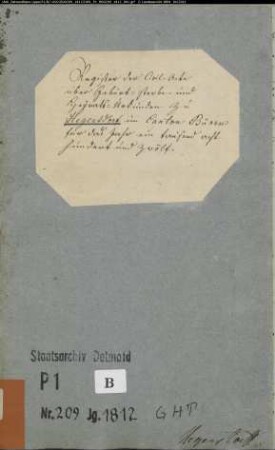 Register der Civil-Acte
über Geburt- Sterbe- und
Heyraths-Urkunden zu
Hegensdorf im Canton Büren
für das Jahr ein tausend acht
hundert und zwölf.
Staatsarchiv Detmold
P1
B
Nr. 209 Jg. 1812 GHT
Hegensdorf